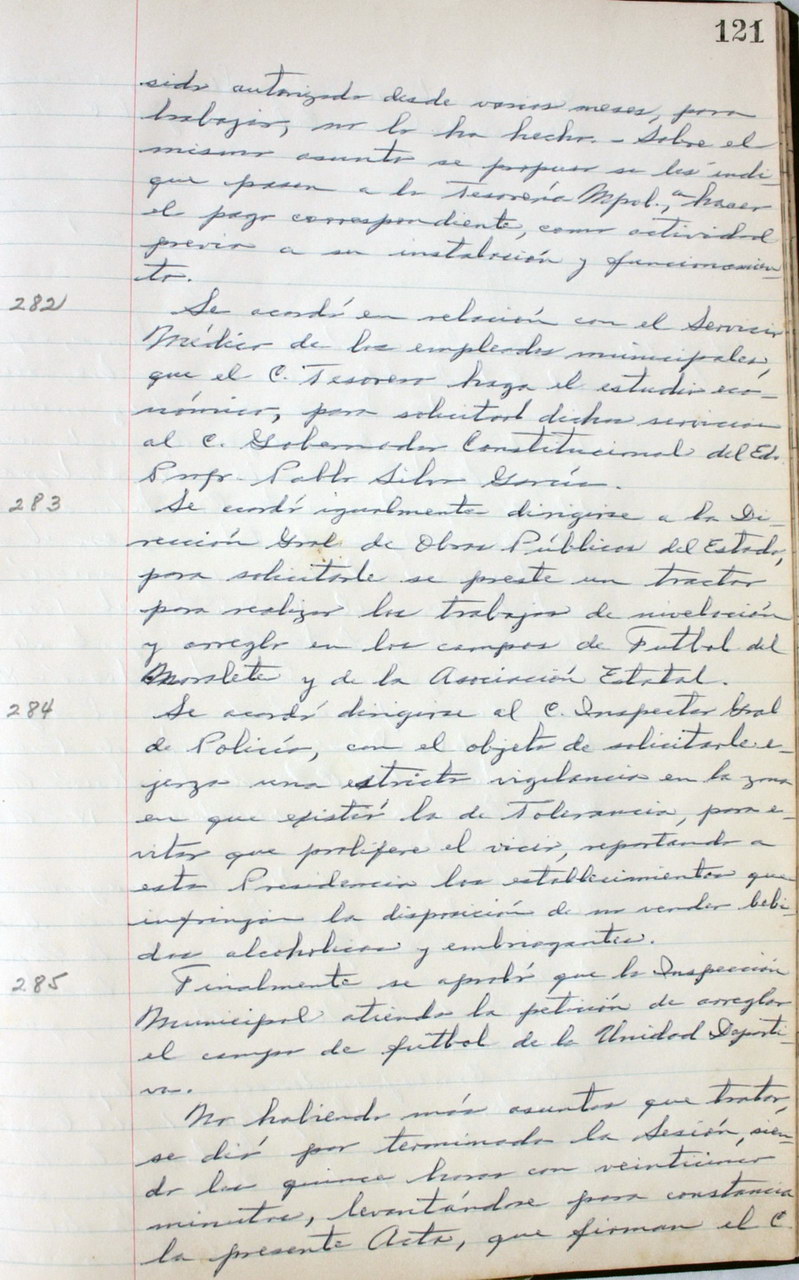 121
sido autorizado desde varios meses, para
trabajar, no lo ha hecho. - Sobre el
mismo asunto se propuso se les indi-
que pasen a la Tesorería Mpal., a hacer
el pago correspondiente, como actividad
previa a su instalación y funcionamien-
to.
282
Se acordó en relación con el Servicio
Médico de los empleados municipales,
que el C. Tesorero haga el estudio eco-
nómico, para solicitar dichos servicios
al C. Gobernador Constitucional del Edo.
Profr. Pablo Silva García.
283
Se acordó igualmente dirigirse a la Di-
rección Gral. de Obras Públicas del Estado,
para solicitarle se preste un tractor
para realizar los trabajos de nivelación
y arreglo en los campos de Futbol del
Moralete y de la Asociación Estatal.
284
Se acordó dirigirse al C. Inspector Gral
de Policía, con el objeto de solicitarle e-
jerza una estricta vigilancia en la zona
en que existió la de Tolerancia, para e-
vitar que prolifere el vicio, reportando a
esta Presidencia los establecimientos que
infrinjan la disposición de no vender bebi-
das alcoholicas y embriagantes.
285
Finalmente se aprobó que la Inspección
Municipal atienda la petición de arreglar
el campo de futbol de la Unidad Deporti-
va.
No habiendo más asuntos que tratar,
se dió por terminada la Sesión, sien-
do las quince horas con veinticinco
minutos, levantándose para constancia
la presente Acta, que firman el C.